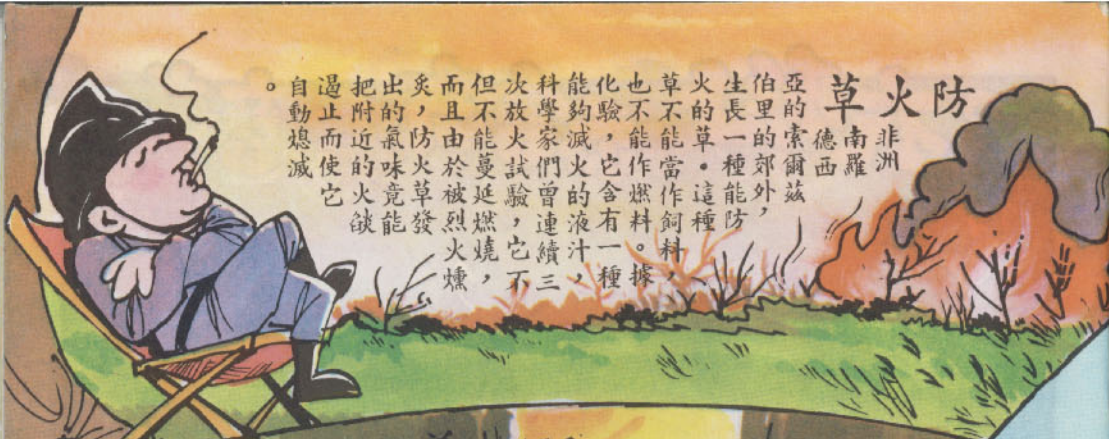 防火草
非洲
南羅
德西
亞的索爾茲
伯里的郊外，
生長一種能防
火的草．這種
草不能當作飼料，
也不能作燃料。據
化驗，它含有一種
能夠滅火的液汁，
科學家們曾連續三
次放火試驗，它不
但不能蔓延燃燒，
而且由於被烈火燻
炙，防火草發
出的氣味竟能
把附近的火燄
遏止而使它
自動熄滅
。